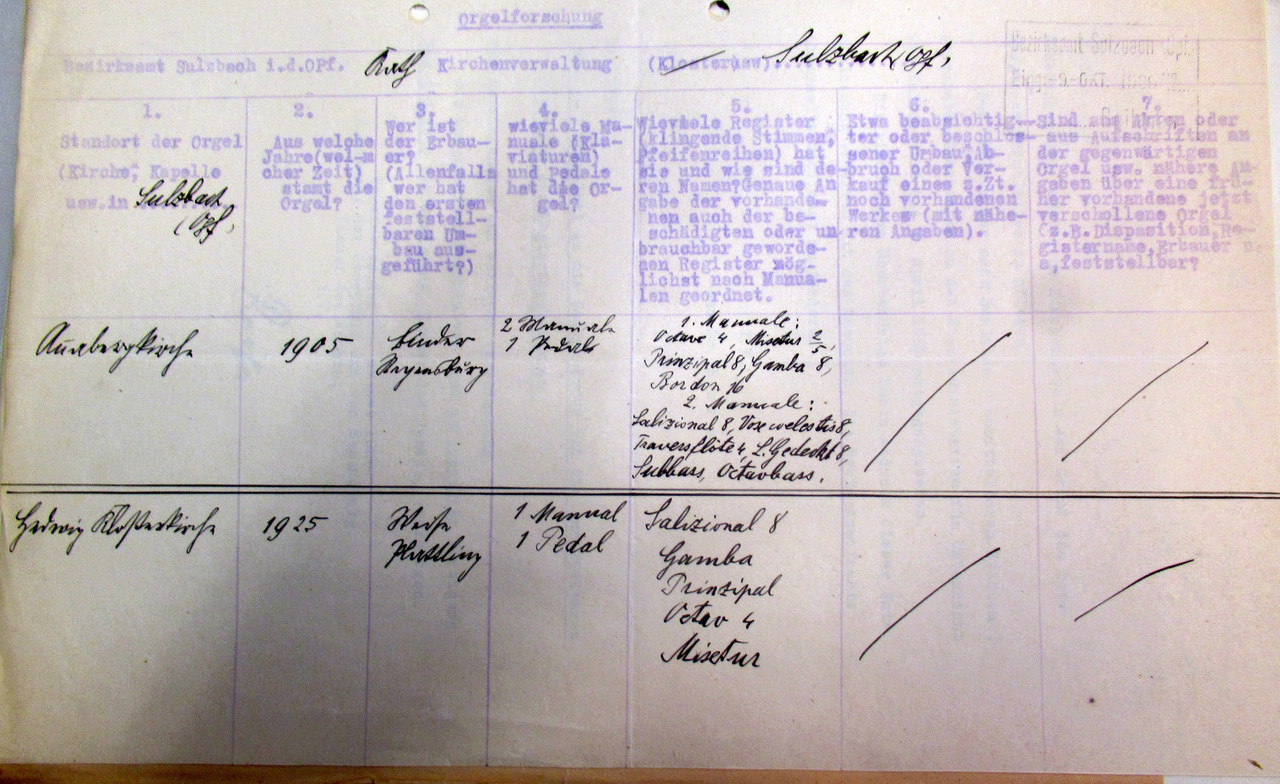 Orgelforschung
Bezirksamt Sulzbach i.d.OPf. Kath Kirchenverwaltung (Klosterusw)........... Sulzbach, Opf,
Bezirksamt Sulzbach Opf.
1.
Standort der Orgel
(Kirche, Kapelle
usw.in
Sulzbach
(Opf,
2.
Aus welche
Jahre(wel-m
cher Zeit)
stamt die
Orgel?
3.
Wer ist
der Erbau-
er?
(Allenfalls
wer hat
den ersten
feststell-
baren Um-
bau aus-
geführt?)
4.
wieviele Ma-
nuale (Kla-
viaturen)
und Pedale
hat die Or-
gel?
5.
Wieviele Register
(klingende Stimmen,
Pfeifenreihen) hat
sie und wie sind de-
ren Namen?Genaue An
gabe der vorhande-
nen auch der be-
schädigten oder un
brauchbar geworde-
nen Register mög-
lichst nach Manua-
len geordnet.
6.
Etwa beabsichtig-
ter oder beschlos-
sener Umbau, Ab-
bruch oder Ver-
kauf eines z.Zt.
noch vorhandenen
Werkes (mit nähe-
ren Angaben).
7.
Sind aus Akten oder
aus Aufschriften an
der gegenwärtigen
Orgel usw. nähere An-
gaben über eine frü-
her vorhandene jetzt
verschollene Orgel
(z.B.Disposition,Re-
gistername,Erbauer
a,feststellbar?
Annabergkirche
1905
Binder
Regensburg
2 Manuale
1 Pedale
1. Manuale:
Octave 4, Mixtur 2/5,
Prinzipal 8, Gamba 8,
Bordon 16
2. Manuale:
Salizional 8, Vox coelestis 8,
Traversflöte 4, L. Gedeckt 8,
Subbass, Octavbass.
Hedwig Klosterkirche
1925
Weise
Plattling
1 Manual
1 Pedal
Salizional 8
Gamba
Prinzipal
Octav 4
Mixtur